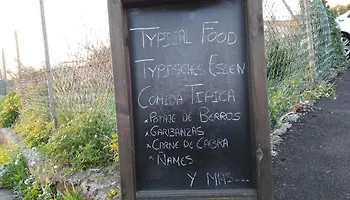 Typical Food
Typisches Essen
Comida Tipica
*Potaje de Berros
*Garibanzas
*Carne de Cabra
*Ñames
y mas....